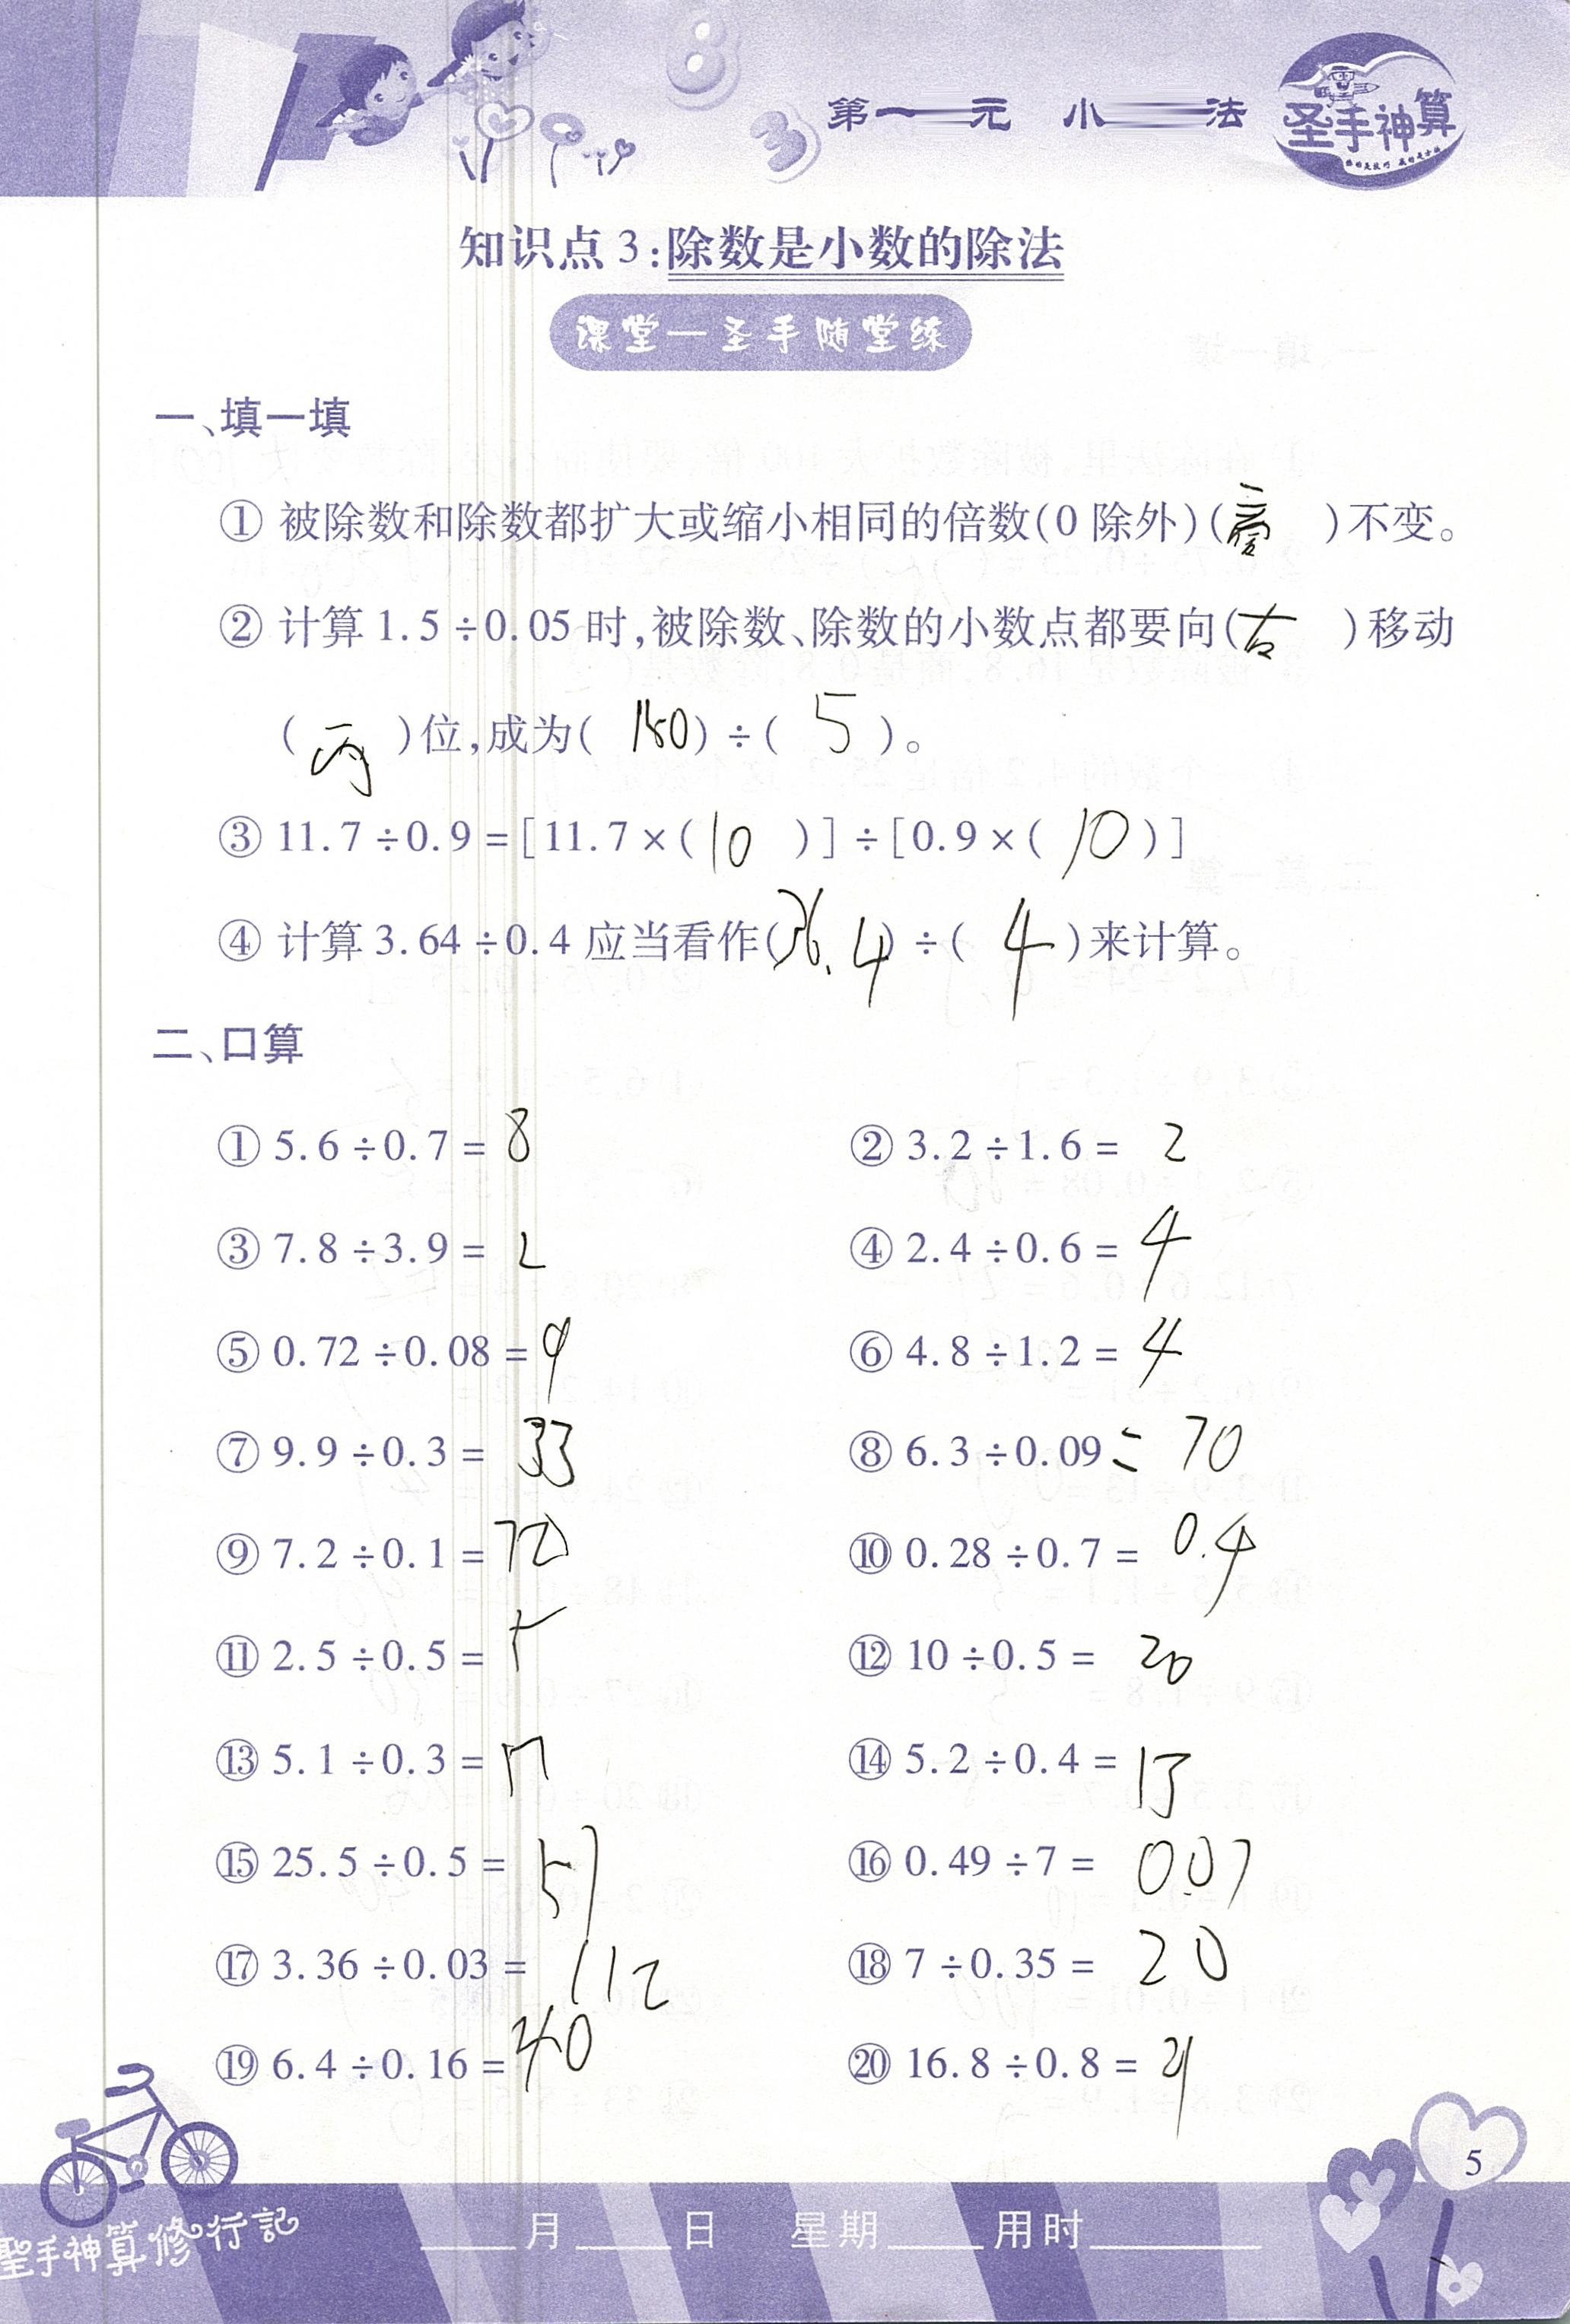 第一元 小法 圣手神算
知识点3:除数是小数的除法
课堂一圣手随堂练
一、填一填
① 被除数和除数都扩大或缩小相同的倍数(0除外)(商)不变。
② 计算1.5÷0.05时,被除数、除数的小数点都要向(右)移动
(两)位,成为(150)÷(5)。
③ 11.7÷0.9=[11.7×(10)]÷[0.9×(10)]
④ 计算3.64÷0.4应当看作(36.4)÷(4)来计算。
二、口算
① 5.6÷0.7=8 ② 3.2÷1.6=2
③ 7.8÷3.9=2 ④ 2.4÷0.6=4
⑤ 0.72÷0.08=9 ⑥ 4.8÷1.2=4
⑦ 9.9÷0.3=33 ⑧ 6.3÷0.09=70
⑨ 7.2÷0.1=72 ⑩ 0.28÷0.7=0.4
⑪ 2.5÷0.5=5 ⑫ 10÷0.5=20
⑬ 5.1÷0.3=17 ⑭ 5.2÷0.4=13
⑮ 25.5÷0.5=51 ⑯ 0.49÷7=0.07
⑰ 3.36÷0.03=112 ⑱ 7÷0.35=20
⑲ 6.4÷0.16=40 ⑳ 16.8÷0.8=21
5
聖手神算修行記 月 日 星期 用时